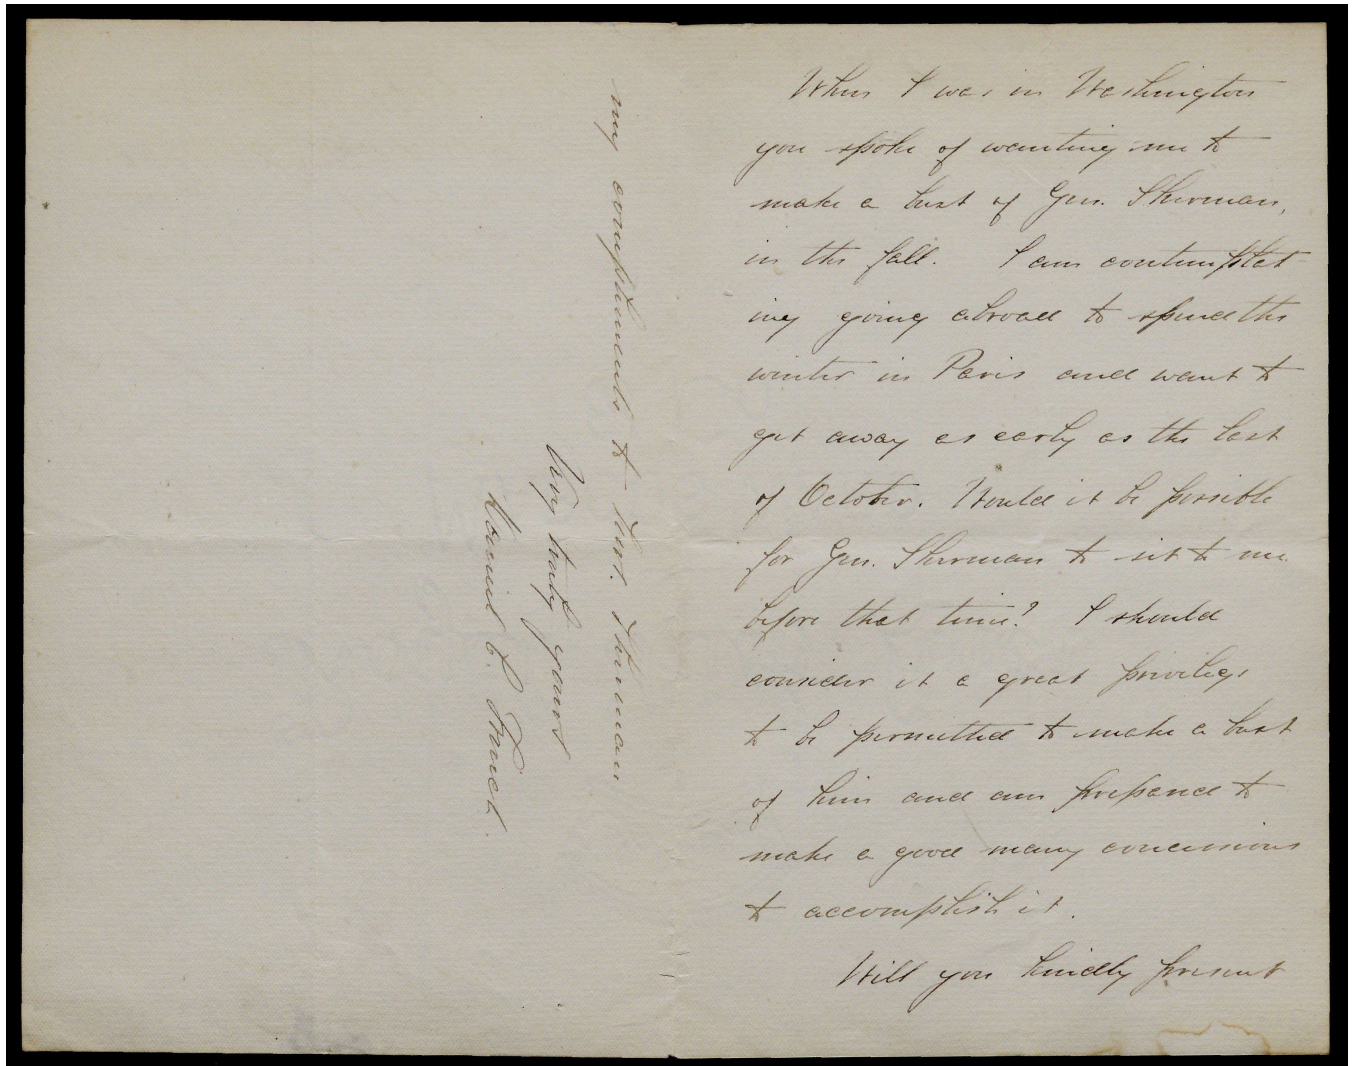 When I was in Washington
you spoke of wanting me to
make a bust of Gen. Sherman,
in the fall. I am contemplat
ing going abroad to spend the
winter in Paris and want to
get away as early as the last
of October. Would it be possible
for Gen. Sherman to sit to me
before that time? I should
consider it a great privilege
to be permitted to make a bust
of him and am prepared to
make a good many concessions
to accomplish it.
Will you kindly present
my compliments to Mrs. Sherman
Very truly yours
Daniel C. French.